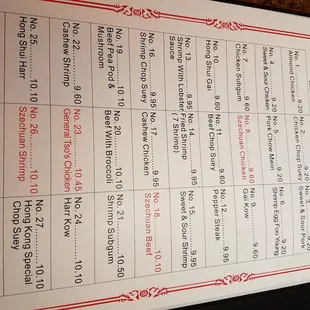 No. 1.......... 9.20
Almond Chicken
No. 2.......... 9.20
Chicken Chop Suey
Sweet & Sour Pork
No. 4.......... 9.20
Sweet & Sour Chicken
No. 5.......... 9.20
Pork Chow Mein
No. 6.......... 9.20
Shrimp Egg Foo Young
No. 7.......... 9.60
Chicken Subgum
No. 8.......... 9.60
Szechuan Chicken
No. 9.......... 9.60
Gai Kow
No. 10.......... 9.60
Hong Shui Gai
No. 11.......... 9.95
Beef Chop Suey
No. 12.......... 9.95
Pepper Steak
No. 13.......... 9.95
Shrimp With Lobster
Sauce
No. 14.......... 9.95
Fried Shrimp
( 7 Shrimp)
No. 15.......... 9.95
Sweet & Sour Shrimp
No. 16.......... 9.95
Shrimp Chop Suey
No. 17.......... 9.95
Cashew Chicken
No. 18.......... 10.10
Szechuan Beef
No. 19.......... 10.10
Beef Pea Pod &
Mushroom
No. 20.......... 10.10
Beef With Broccoli
No. 21.......... 10.50
Shrimp Subgum
No. 22.......... 9.60
Cashew Shrimp
No. 23.......... 10.45
General Tso's Chicken
No. 24.......... 10.10
Harr Kow
No. 25.......... 10.10
Hong Shui Harr
No. 26.......... 10.10
Szechuan Shrimp
No. 27.......... 10.10
Hong Kong Special
Chop Suey